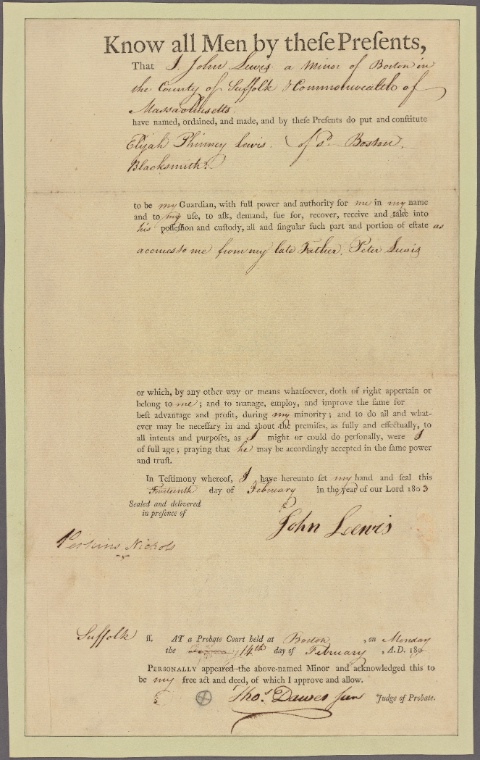 Know all Men by theſe Preſents,
That I John Lewis a Minor of Boston in
the County of Suffolk & Commonwealth of
Massachusetts
have named, ordained, and made, and by theſe Preſents do put and conſtitute
Elijah Phinney Lewis of sd. Boston,
Blacksmith
to be my Guardian, with full power and authority for me in my name
and to my uſe, to aſk, demand, ſue for, recover, receive and take into
his poſſeſſion and cuſtody, all and ſingular ſuch part and portion of eſtate as
accrues to me from my late Father, Peter Lewis
or which, by any other way or means whatſoever, doth of right appertain or
belong to me; and to manage, employ, and improve the ſame for
beſt advantage and profit, during my minority; and to do all and what-
ever may be neceſſary in and about the premiſes, as fully and effectually, to
all intents and purpoſes, as I might or could do perſonally, were I
of full age; praying that he may be accordingly accepted in the ſame power
and truſt.
In Teſtimony whereof, I have hereunto ſet my hand and ſeal this
Fourteenth day of February In the year of our Lord 1803
Sealed and delivered
in preſence of
John Leewis
Perkins Nichols
Suffolk ſſ. AT a Probate Court held at Boston, on Monday
the 14th day of February A.D. 180
PERSONALLY appeared the above-named Minor and acknowledged this to
be my free act and deed, of which I approve and allow.
Thos. Dawes Jun Judge of Probate.